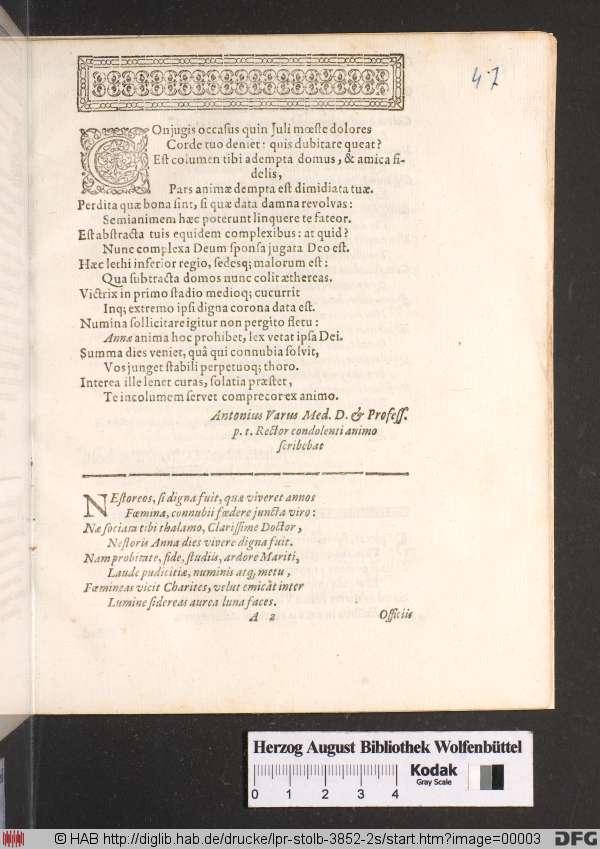 47
COnjugis occasus quin Juli mœste dolores
Corde tuo deniet: quis dubitare queat?
Est columen tibi adempta domus, & amica fi-
delis,
Pars animæ dempta est dimidiata tuæ.
Perdita quæ bona sint, si quæ data damna revolvas:
Semianimem hæc poterunt linquere te fateor.
Est abstracta tuis equidem complexibus: at quid?
Nunc complexa Deum sponsa jugata Deo est.
Hæc lethi inferior regio, sedesq; malorum est:
Qua subtracta domos nunc colit æthereas.
Victrix in primo stadio medioq; cucurrit
Inq; extremo ipsi digna corona data est.
Numina sollicitare igitur non pergito fletu:
Annæ anima hoc prohibet, lex vetat ipsa Dei.
Summa dies veniet, quâ qui connubia solvit,
Vos junget stabili perpetuoq; thoro.
Interea ille lenet curas, solatia præstet,
Te incolumem servet comprecor ex animo.
Antonius Varus Med. D. & Profess.
p. t. Rector condolenti animo
scribebat
NEstoreos, si digna fuit, quæ viveret annos
Fœmina, connubii fœdere juncta viro:
Næ sociata tibi thalamo, Clarissime Doctor,
Nestoris Anna dies vivere digna fuit.
Nam probitate, fide, studiis, ardore Mariti,
Laude pudicitiæ, numinis atq; metu,
Fœmineas vicit Charites, velut emicāt inter
Lumine sidereas aurea luna faces.
A 2 Officiis
Herzog August Bibliothek Wolfenbüttel
0 1 2 3 4
Kodak
Gray Scale
© HAB http://diglib.hab.de/drucke/lpr-stolb-3852-2s/start.htm?image=00003
DFG